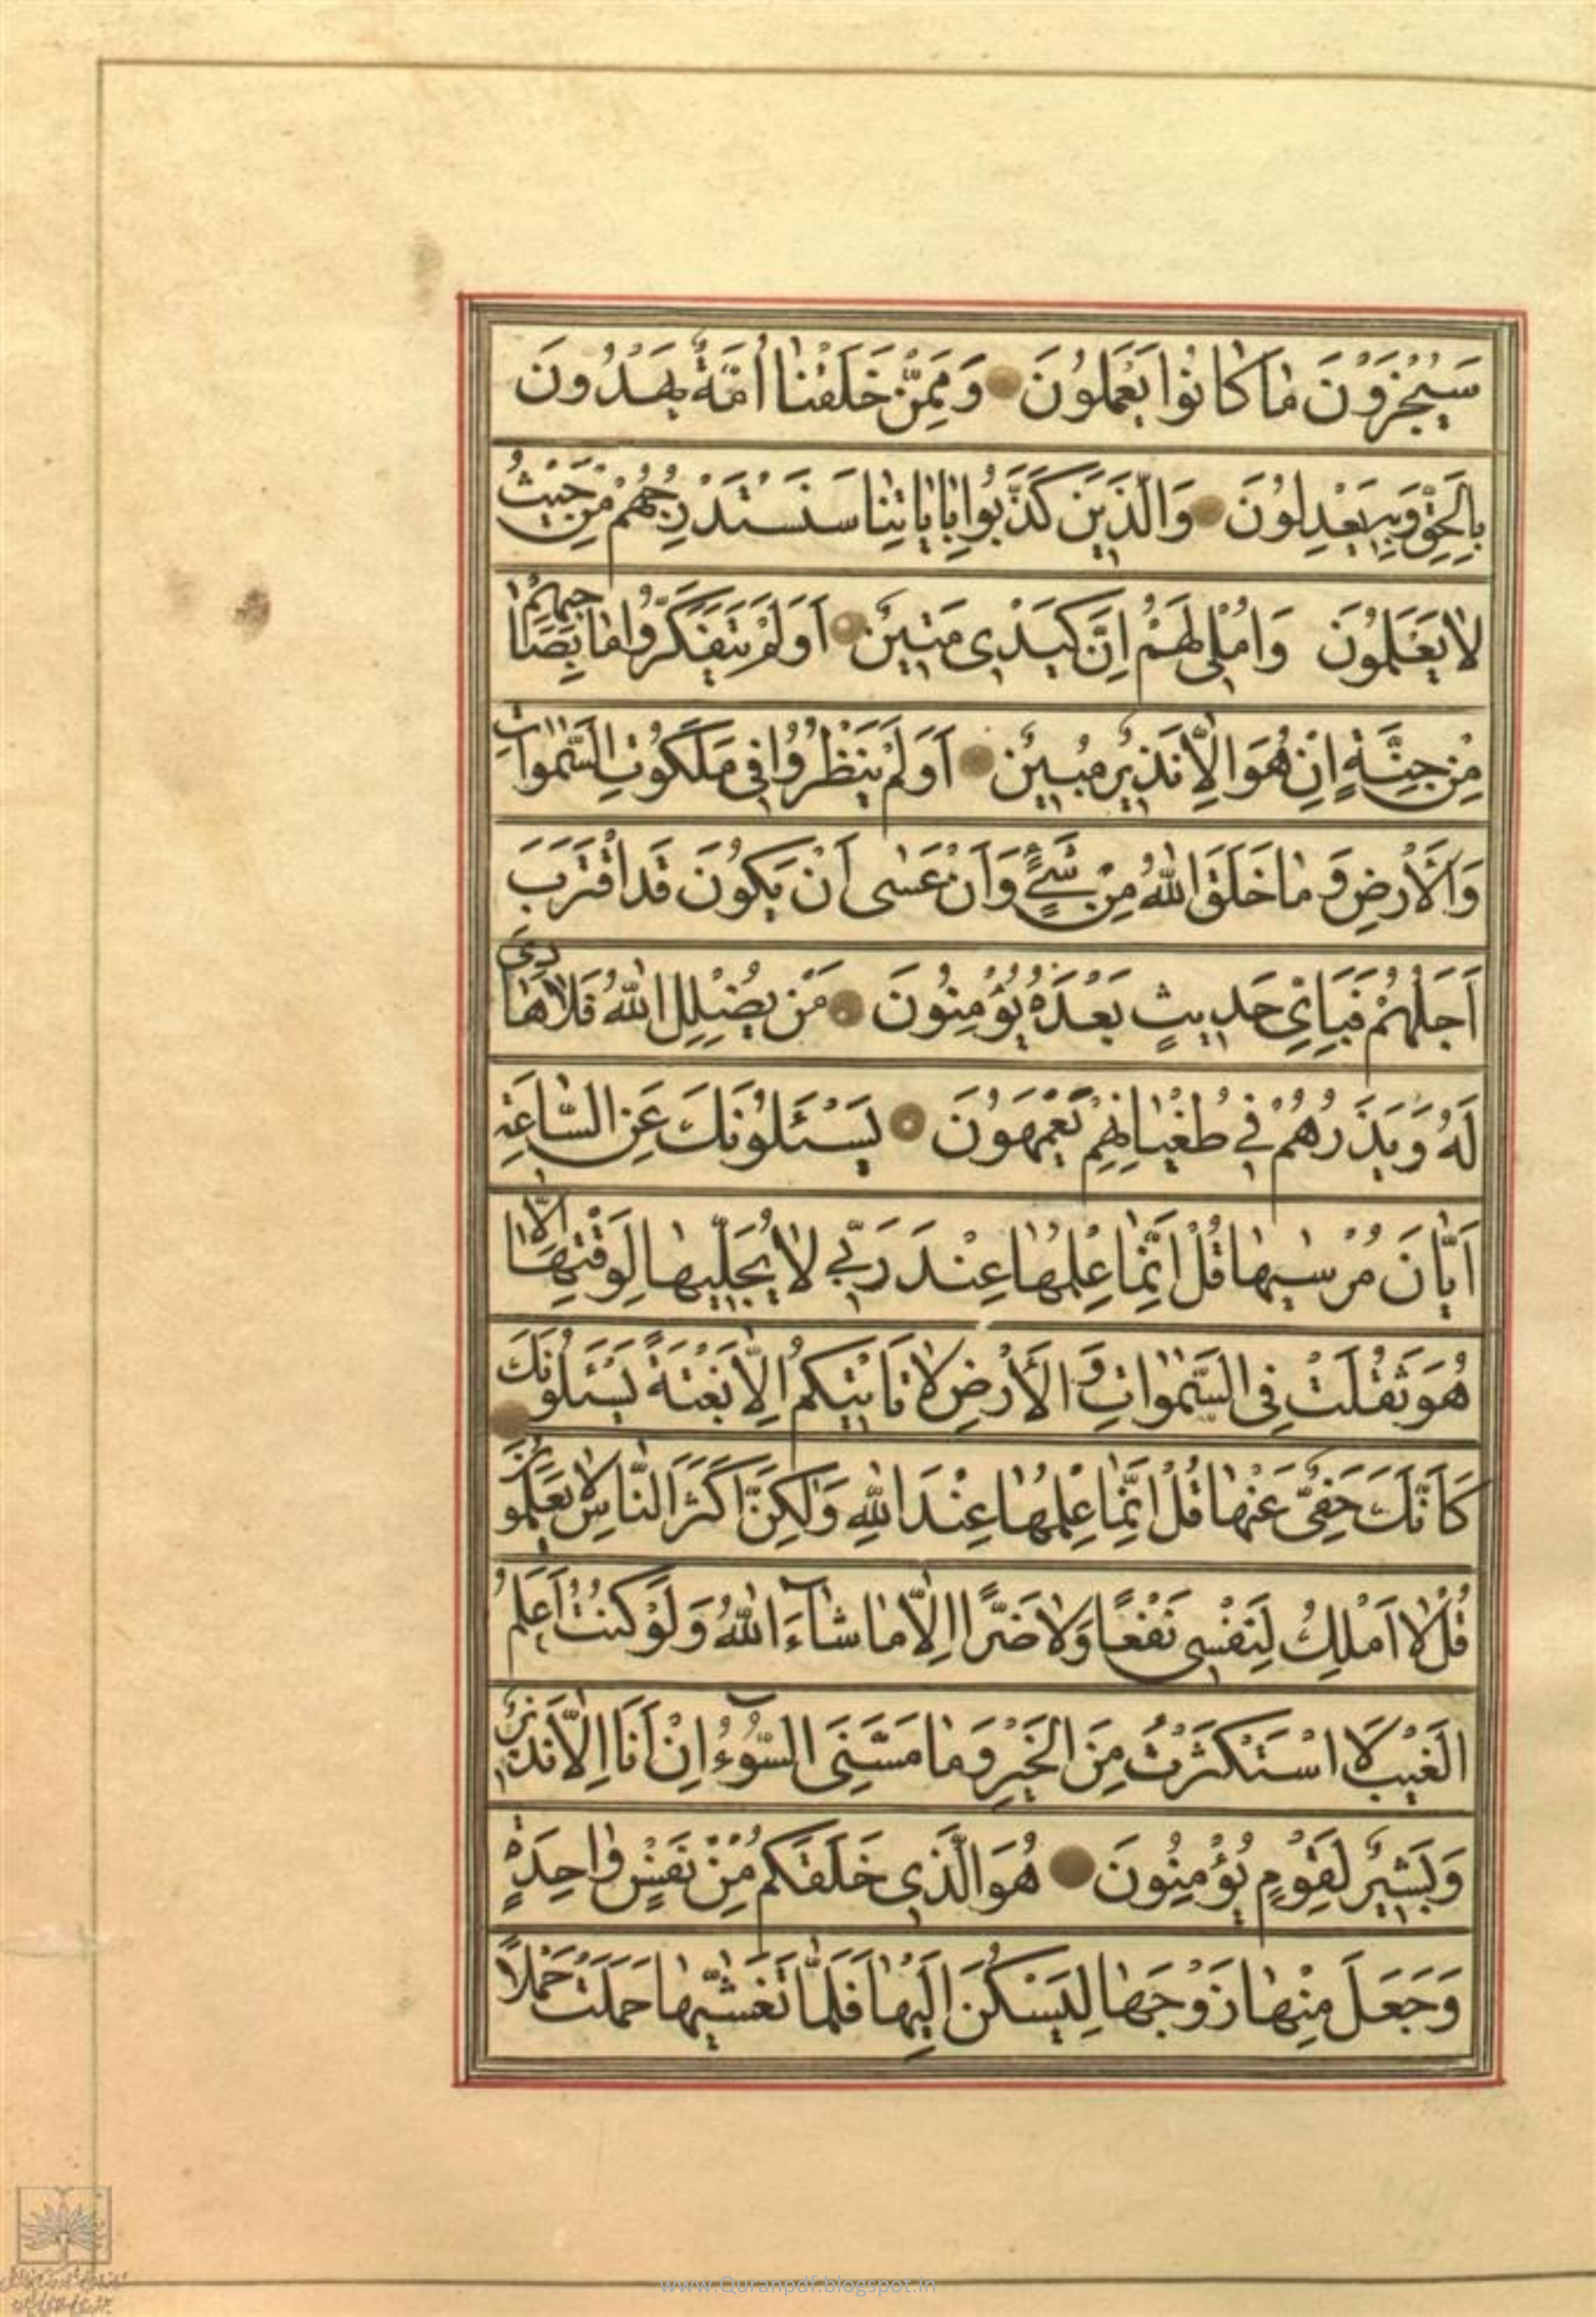 سَيُجْزَوْنَ مٰا كٰانُوا يَعْمَلُونَ وَمِمَّنْ خَلَقْنٰا اُمَّةٌ يَهْدُونَ
بِالْحَقِّ وَبِهِ يَعْدِلُونَ وَالَّذِينَ كَذَّبُوا بِاٰيٰاتِنٰا سَنَسْتَدْرِجُهُمْ مِنْ حَيْثُ
لٰا يَعْلَمُونَ وَاُمْلِي لَهُمْ اِنَّ كَيْدِي مَتِينٌ اَوَلَمْ يَتَفَكَّرُوا مٰا بِصٰاحِبِهِمْ
مِنْ جِنَّةٍ اِنْ هُوَ اِلّٰا نَذِيرٌ مُبِينٌ اَوَلَمْ يَنْظُرُوا فِي مَلَكُوتِ السَّمٰوٰاتِ
وَالْأَرْضِ وَمٰا خَلَقَ اللّٰهُ مِنْ شَيْءٍ وَاَنْ عَسٰى اَنْ يَكُونَ قَدِ اقْتَرَبَ
اَجَلُهُمْ فَبِاَيِّ حَدِيثٍ بَعْدَهُ يُؤْمِنُونَ مَنْ يُضْلِلِ اللّٰهُ فَلٰا هٰادِيَ
لَهُ وَيَذَرُهُمْ فِي طُغْيٰانِهِمْ يَعْمَهُونَ يَسْئَلُونَكَ عَنِ السّٰاعَةِ
اَيّٰانَ مُرْسٰيهٰا قُلْ اِنَّمٰا عِلْمُهٰا عِنْدَ رَبِّي لٰا يُجَلِّيهٰا لِوَقْتِهٰا اِلّٰا
هُوَ ثَقُلَتْ فِي السَّمٰوٰاتِ وَالْأَرْضِ لٰا تَأْتِيكُمْ اِلّٰا بَغْتَةً يَسْئَلُونَكَ
كَاَنَّكَ حَفِيٌّ عَنْهٰا قُلْ اِنَّمٰا عِلْمُهٰا عِنْدَ اللّٰهِ وَلٰكِنَّ اَكْثَرَ النّٰاسِ لٰا يَعْلَمُونَ
قُلْ لٰا اَمْلِكُ لِنَفْسِي نَفْعًا وَلٰا ضَرًّا اِلّٰا مٰا شٰاءَ اللّٰهُ وَلَوْ كُنْتُ اَعْلَمُ
الْغَيْبَ لَا اسْتَكْثَرْتُ مِنَ الْخَيْرِ وَمٰا مَسَّنِيَ السُّوءُ اِنْ اَنَا اِلّٰا نَذِيرٌ
وَبَشِيرٌ لِقَوْمٍ يُؤْمِنُونَ هُوَ الَّذِي خَلَقَكُمْ مِنْ نَفْسٍ وٰاحِدَةٍ
وَجَعَلَ مِنْهٰا زَوْجَهٰا لِيَسْكُنَ اِلَيْهٰا فَلَمّٰا تَغَشّٰيهٰا حَمَلَتْ حَمْلًا
www.Quranpdf.blogspot.in